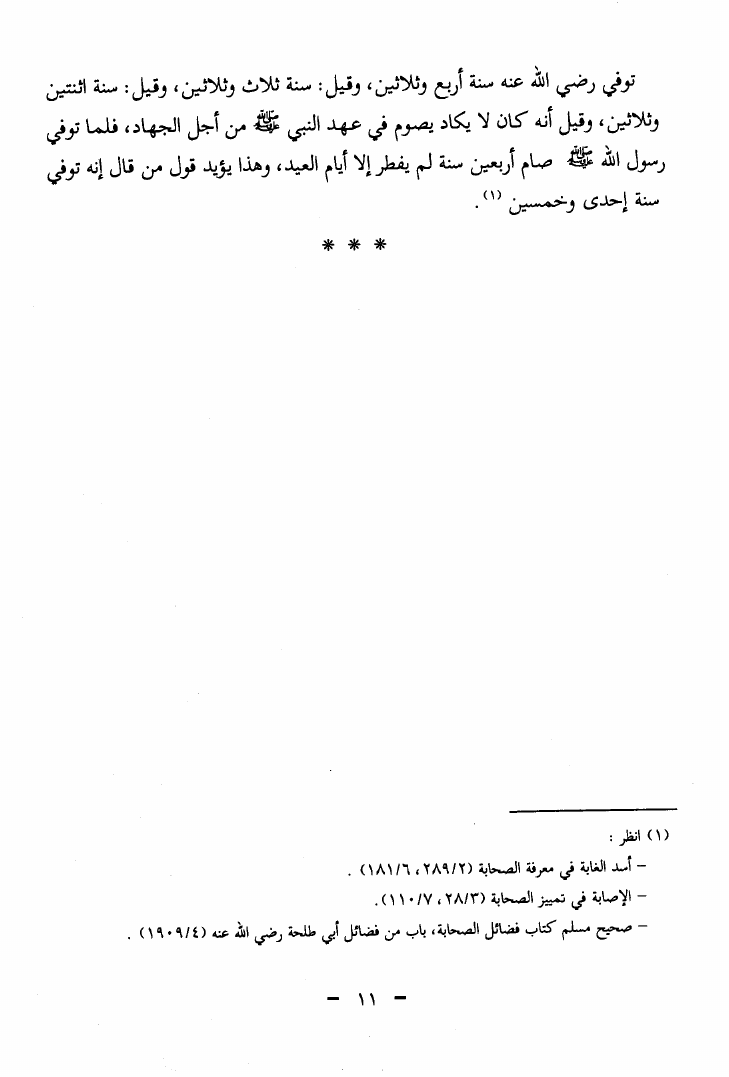 توفي رضي الله عنه سنة أربع وثلاثين، وقيل: سنة ثلاث وثلاثين، وقيل: سنة اثنتين
وثلاثين، وقيل أنه كان لا يكاد يصوم في عهد النبي ﷺ من أجل الجهاد، فلما توفي
رسول الله ﷺ صام أربعين سنة لم يفطر إلا أيام العيد، وهذا يؤيد قول من قال إنه توفي
سنة إحدى وخمسين (١).
* * *
(١) انظر :
– أسد الغابة في معرفة الصحابة (٢/٢٨٩، ٦/١٨١) .
– الإصابة في تمييز الصحابة (٣/٢٨، ٧/١١٠).
– صحيح مسلم كتاب فضائل الصحابة، باب من فضائل أبي طلحة رضي الله عنه (٤/١٩٠٩) .
– ١١ –